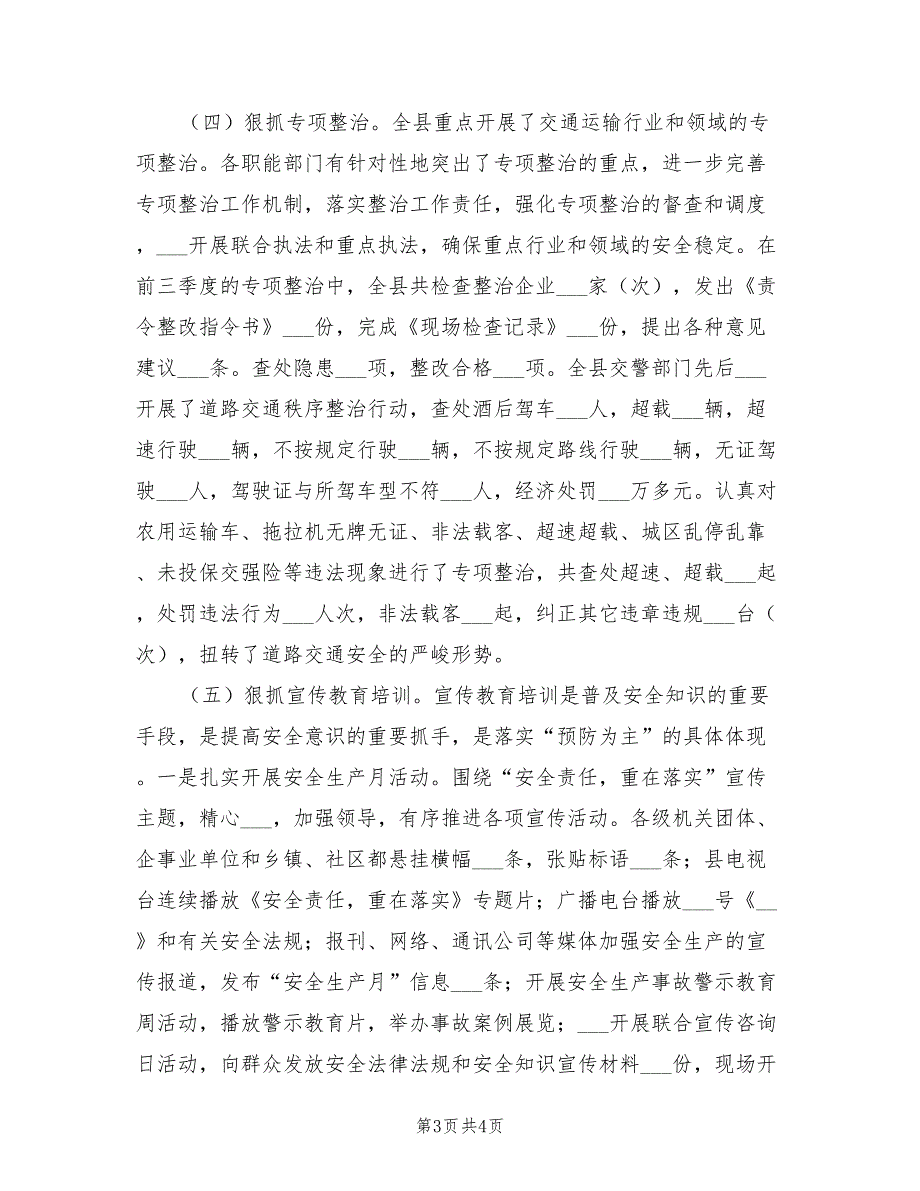 （四）狠抓专项整治。全县重点开展了交通运输行业和领域的专
项整治。各职能部门有针对性地突出了专项整治的重点，进一步完善
专项整治工作机制，落实整治工作责任，强化专项整治的督查和调度
，___开展联合执法和重点执法，确保重点行业和领域的安全稳定。在
前三季度的专项整治中，全县共检查整治企业___家（次），发出《责
令整改指令书》___份，完成《现场检查记录》___份，提出各种意见
建议___条。查处隐患___项，整改合格___项。全县交警部门先后___
开展了道路交通秩序整治行动，查处酒后驾车___人，超载___辆，超
速行驶___辆，不按规定行驶___辆，不按规定路线行驶___辆，无证驾
驶___人，驾驶证与所驾车型不符___人，经济处罚___万多元。认真对
农用运输车、拖拉机无牌无证、非法载客、超速超载、城区乱停乱靠
、未投保交强险等违法现象进行了专项整治，共查处超速、超载___起
，处罚违法行为___人次，非法载客___起，纠正其它违章违规___台（
次），扭转了道路交通安全的严峻形势。
（五）狠抓宣传教育培训。宣传教育培训是普及安全知识的重要
手段，是提高安全意识的重要抓手，是落实“预防为主”的具体体现
。一是扎实开展安全生产月活动。围绕“安全责任，重在落实”宣传
主题，精心___，加强领导，有序推进各项宣传活动。各级机关团体、
企事业单位和乡镇、社区都悬挂横幅___条，张贴标语___条；县电视
台连续播放《安全责任，重在落实》专题片；广播电台播放___号《__
》和有关安全法规；报刊、网络、通讯公司等媒体加强安全生产的宣
传报道，发布“安全生产月”信息___条；开展安全生产事故警示教育
周活动，播放警示教育片，举办事故案例展览；___开展联合宣传咨询
日活动，向群众发放安全法律法规和安全知识宣传材料___份，现场开
第3页共4页